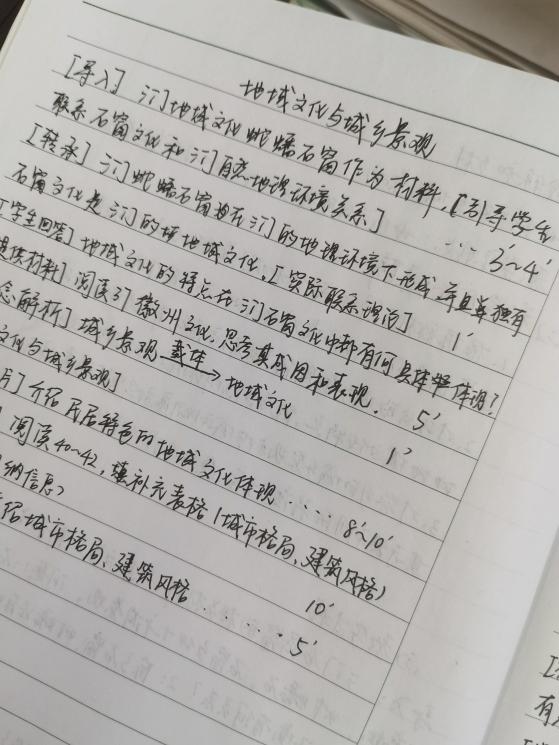 地域文化与城乡景观
[导入] 三门地域文化蛇蟠石窗作为材料,[引导学生
联系石窗文化和三门自然地理环境关系] ... 3'~4'
[转承] 三门蛇蟠石窗
石窗文化是三门的地域文化.[实际联系理论] 1'
[学生回答] 地域文化的特点在三门石窗文化中都有何具体体现?
提供材料] 阅读37 徽州文化,思考其成因和表现. 5'
念解析] 城乡景观 载体→ 地域文化 1'
文化与城乡景观]
片] 介绍民居特色的地域文化体现 .... 8'~10'
阅读40~42,填补充表格(城市格局、建筑风格)
纳信息> 10'
绍城市格局、建筑风格 ...... 5'
有